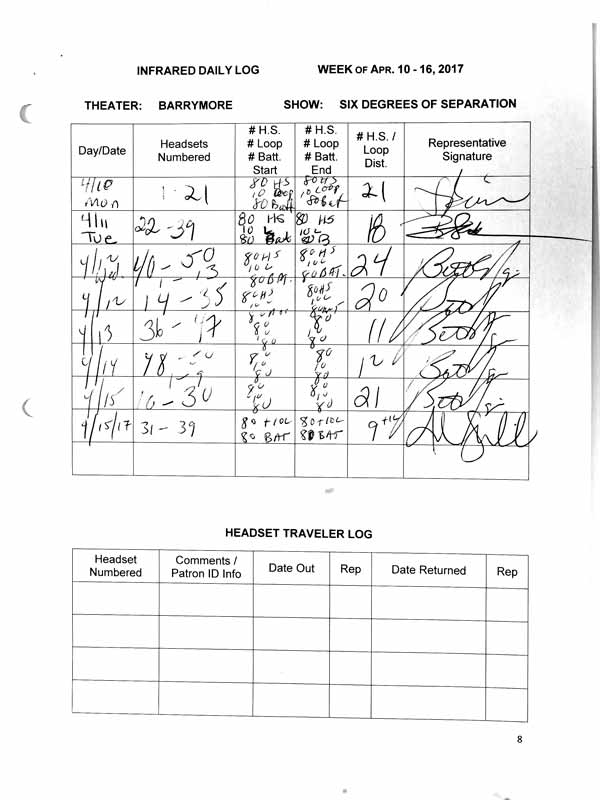 INFRARED DAILY LOG WEEK OF APR. 10 - 16, 2017
THEATER: BARRYMORE SHOW: SIX DEGREES OF SEPARATION
Day/Date Headsets Numbered # H.S. # Loop # Batt. Start # H.S. # Loop # Batt. End # H.S. / Loop Dist. Representative Signature
4/10 Mon 1-21 80 HS 10 Loop 80 Batt 80 HS 10 Loop 80 Bat 21
4/11 Tue 22-39 80 HS 10 L 80 Bat 80 HS 10 L 80 B 18
4/12 Wed. 40-50 1-13 80 HS 10 L 80 BAT. 80 HS 10 L 80 BAT. 24
4/12 14-35 80 HS 80 HS 20
4/13 36-47 80 80 80 11
4/14 48-50 1-9 80 10 80 80 10 80 12
4/15 10-30 80 10 80 80 10 80 21
4/15/17 31-39 80 + 10L 80 BAT 80 + 10L 80 BAT 9
HEADSET TRAVELER LOG
Headset Numbered Comments / Patron ID Info Date Out Rep Date Returned Rep
8